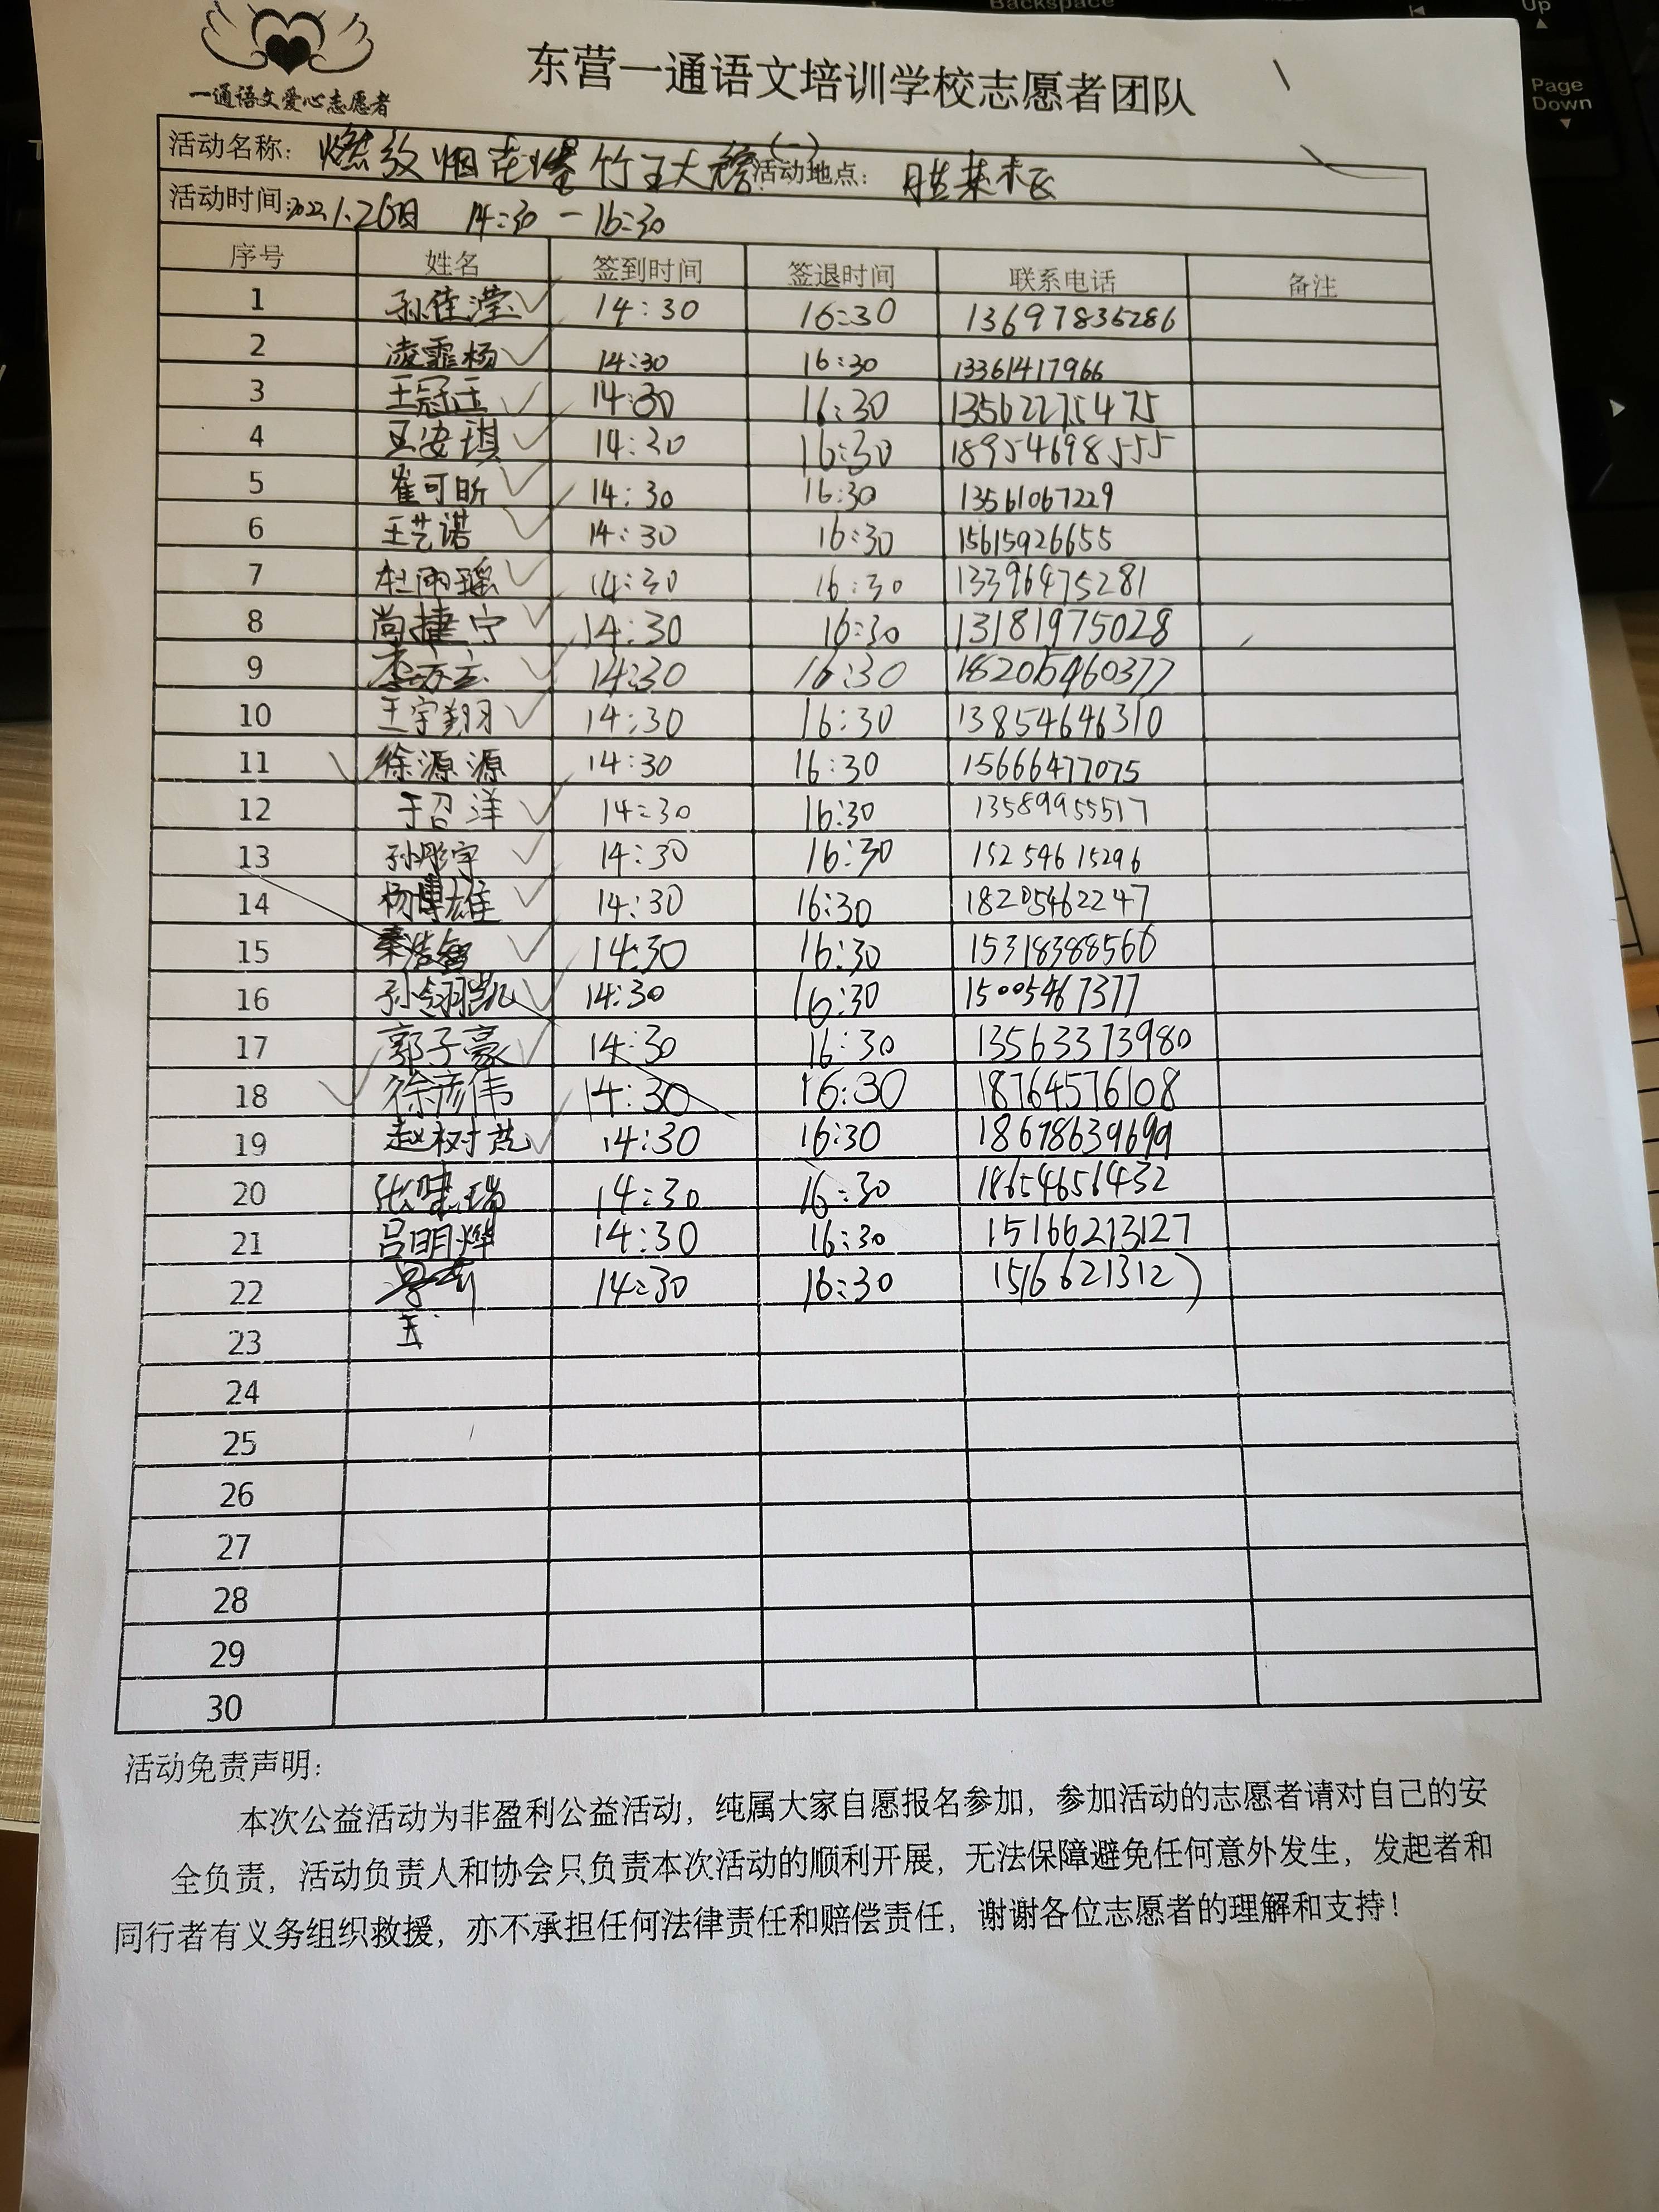 Backspace
Up
Page
Down
一通语文爱心志愿者
东营一通语文培训学校志愿者团队
活动名称: 燃放烟花爆竹 (一) 活动地点:
活动时间: 2022.1.26日 14:30 — 16:30
序号 姓名 签到时间 签退时间 联系电话 备注
1 孙佳滢 14:30 16:30 13697835286
2 凌霏杨 14:30 16:30 13361417966
3 王冠玉 14:30 16:30 13562275475
4 王安琪 14:30 16:30 18954698555
5 崔可昕 14:30 16:30 13561067229
6 王艺诺 14:30 16:30 15615926655
7 杜雨瑶 14:30 16:30 13396475281
8 尚捷宁 14:30 16:30 13181975028
9 14:30 16:30 18205460377
10 王宇翔 14:30 16:30 13854646310
11 徐源源 14:30 16:30 15666477075
12 于召洋 14:30 16:30 13589955517
13 孙彤宇 14:30 16:30 15254615296
14 杨博雄 14:30 16:30 18205462247
15 秦浩智 14:30 16:30 15318388560
16 孙翎凯 14:30 16:30 15005467377
17 郭子豪 14:30 16:30 13563373980
18 徐彦伟 14:30 16:30 18764576108
19 赵树 14:30 16:30 18678639699
20 14:30 16:30 18654656432
21 吕明烨 14:30 16:30 15166213127
22 14:30 16:30
23 王
24
25
26
27
28
29
30
活动免责声明:
本次公益活动为非盈利公益活动，纯属大家自愿报名参加，参加活动的志愿者请对自己的安
全负责，活动负责人和协会只负责本次活动的顺利开展，无法保障避免任何意外发生，发起者和
同行者有义务组织救援，亦不承担任何法律责任和赔偿责任，谢谢各位志愿者的理解和支持！